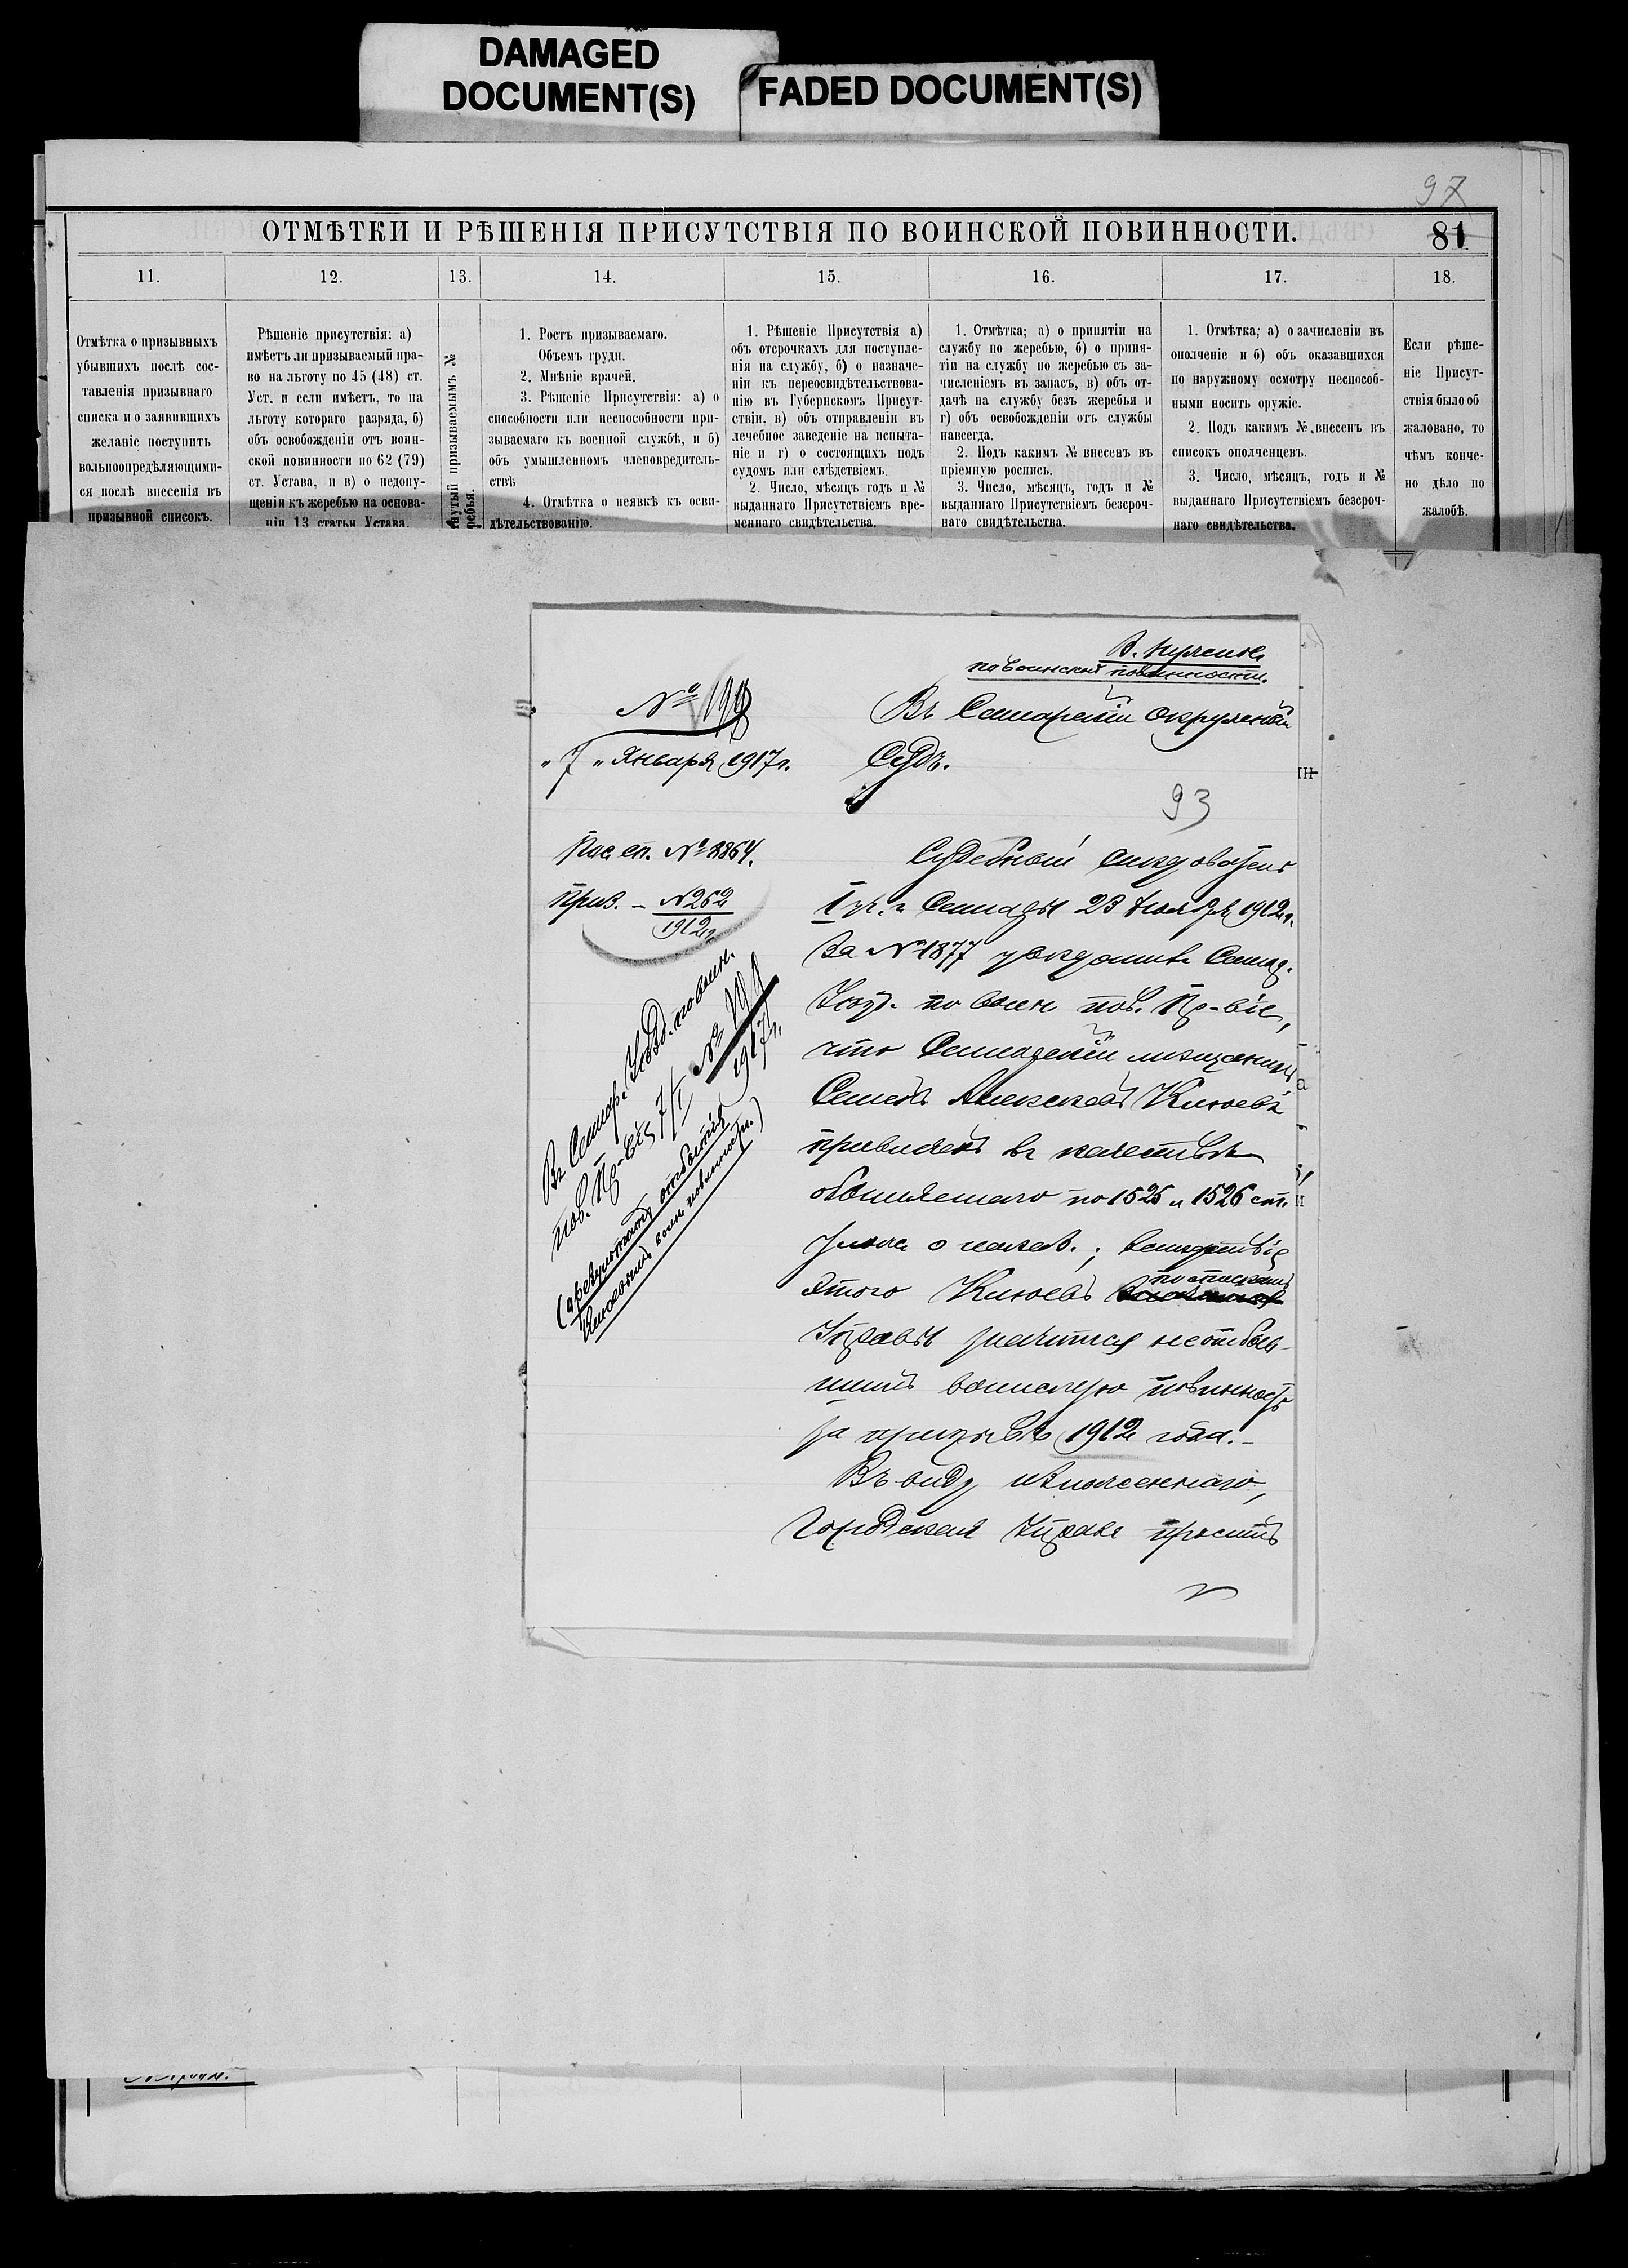 DAMAGED
DOCUMENT(S)
FADED DOCUMENT(S)
97
ОТМѢТКИ И РѢШЕНІЯ ПРИСУТСТВІЯ ПО ВОИНСКОЙ ПОВИННОСТИ.
81
11.
12.
13.
14.
15.
16.
17.
18.
Отмѣтка о призывныхъ
убывшихъ послѣ сос-
тавленія призывнаго
списка и о заявившихъ
желаніе поступить
вольноопредѣляющими-
ся послѣ внесенія въ
призывной списокъ.
Рѣшеніе присутствія: а)
имѣетъ ли призываемый пра-
во на льготу по 45 (48) ст.
Уст. и если имѣетъ, то на
льготу котораго разряда, б)
объ освобожденіи отъ воин-
ской повинности по 62 (79)
ст. Устава, и в) о недопу-
щеніи къ жеребью на основа-
ніи 13 статьи Устава.
нутый призываемымъ №
ребья.
1. Ростъ призываемаго.
Объемъ груди.
2. Мнѣніе врачей.
3. Рѣшеніе Присутствія: а) о
способности или неспособности при-
зываемаго къ военной службѣ, и б)
объ умышленномъ членовредитель-
ствѣ
4. Отмѣтка о неявкѣ къ осви-
дѣтельствованію.
1. Рѣшеніе Присутствія а)
объ отсрочкахъ для поступле-
нія на службу, б) о назначе-
ніи къ переосвидѣтельствова-
нію въ Губернскомъ Присут-
ствіи, в) объ отправленіи въ
лечебное заведеніе на испыта-
ніе и г) о состоящихъ подъ
судомъ или слѣдствіемъ.
2. Число, мѣсяцъ годъ и №
выданнаго Присутствіемъ вре-
меннаго свидѣтельства.
1. Отмѣтка; а) о принятіи на
службу по жеребью, б) о приня-
тіи на службу по жеребью съ за-
численіемъ въ запасъ, в) объ от-
дачѣ на службу безъ жеребья и
г) объ освобожденіи отъ службы
навсегда.
2. Подъ какимъ № внесенъ въ
пріемную роспись.
3. Число, мѣсяцъ, годъ и №
выданнаго Присутствіемъ безсроч-
наго свидѣтельства.
1. Отмѣтка; а) о зачисленіи въ
ополченіе и б) объ оказавшихся
по наружному осмотру неспособ-
ными носить оружіе.
2. Подъ какимъ № внесенъ въ
списокъ ополченцевъ.
3. Число, мѣсяцъ, годъ и №
выданнаго Присутствіемъ безсроч-
наго свидѣтельства.
Если рѣше-
ніе Присут-
ствія было об
жаловано, то
чѣмъ конче-
но дѣло по
жалобѣ.
по воинской повинности.
№ 199
"7" Января 1917 г.
Въ Самарскій Окружной
Судъ.
93
Пос. сп. № 8864.
Приз. – № 262
1912 г.
Судебный слѣдователь
I уч. г. Самары 23 Ноября 1912 г.
за № 1877 увѣдомивъ Самар.
Уѣзд. по воин. пов. Пр-віе,
что Самарскій мѣщанинъ
Семенъ Алексѣевъ Клюевъ
привлеченъ въ качествѣ
обвиняемаго по 1525 и 1526 ст.
улож. о наказ.; вслѣдствіе
по спискамъ
этого Клюевъ
Управы значится неотбыв-
шимъ воинскую повинность
за призывъ 1912 года.–
Въ виду изложеннаго,
Городская Управа проситъ
Въ Самар. Уѣзд. по воин.
пов. Пр-віе 7/I №
1917 г.
(о результатѣ отбытія
Клюевымъ воин. повинности.)